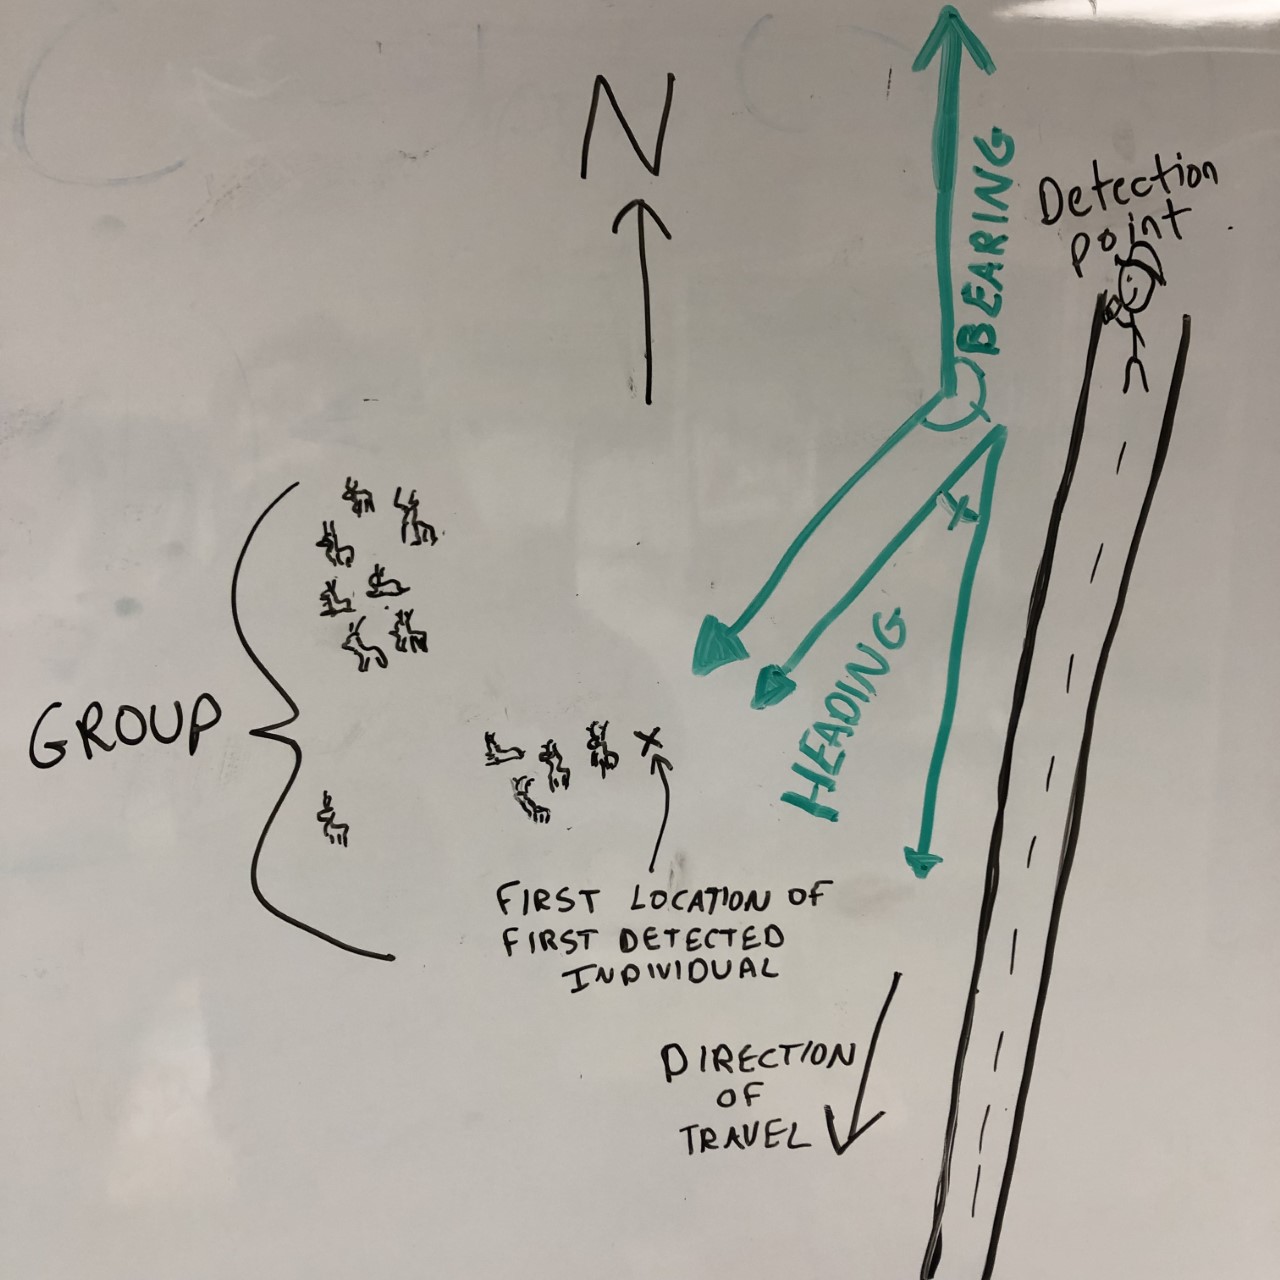 N
BEARING
Detection
point
HEADING
GROUP
FIRST LOCATION OF
FIRST DETECTED
INDIVIDUAL
DIRECTION
OF
TRAVEL